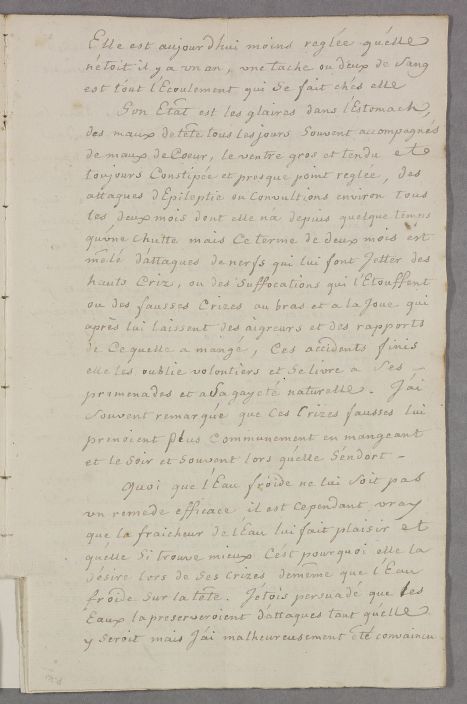 Elle est aujourd'hui moins reglée quelle
n'étoit il y a un an, une tache ou deux de Sang
est tout l'Ecoulement qui se fait chés elle
Son Etat est les glaires dans l'Estomach,
des maux de tete tous les jours Souvent accompagnés
de maux de Coeur, le ventre gros et tendu et
toujours Constipée et presque point reglee, des
attaques d'Epileptie ou Convultions environ tous
les deux mois dont elle na depuis quelque tems
qu'une chutte mais Ce terme de deux mois est
mêlé d'attaques de nerfs qui lui font Jetter des
hauts Criz, ou des Suffocations qui l'Etouffent
ou des fausses Crizes au bras et a la Joue qui
après lui laissent des aigreurs et des rapports
de Ce quelle a mangé, Ces accidents finis
elle les oublie volontiers et Se livre a Ses
promenades et a Sa gayeté naturelle. J'ai
Souvent remarqué que Ces Crizes fausses lui
prenoient plus Communement en mangeant
et le Soir et Souvent lors quelle S'endort -
Quoi que l'Eau froide ne lui Soit pas
un remede efficace il est Cependant vray
que la fraicheur de l'Eau lui fait plaisir et
quelle Si trouve mieux C'est pourquoi elle la
désire lors de Ses Crizes, demême que l'Eau
froide Sur la tête. Jetois persuadé que les
Eaux la preserveroient d'attaques tant quelle
y Seroit mais J'ai malheureusement été convaincu